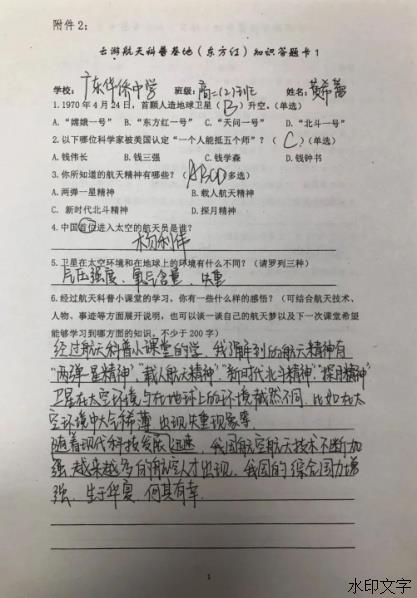 附件2：
云游航天科普基地（东方红）知识答题卡1
学校：广东华侨中学 班级：高二(2)班 姓名：黄希蕾
1.1970年4月24日，首颗人造地球卫星（B）升空。（单选）
A.“嫦娥一号” B.“东方红一号” C.“天问一号” D.“北斗一号”
2.以下哪位科学家被美国认定“一个人能抵五个师”？（C）（单选）
A.钱伟长 B.钱三强 C.钱学森 D.钱钟书
3.你所知道的航天精神有哪些？（ABCD多选）
A.两弹一星精神 B.载人航天精神
C. 新时代北斗精神 D.探月精神
4.中国首位进入太空的航天员是谁？
杨利伟
5.卫星在太空环境和在地球上的环境有什么不同？（请罗列三种）
气压强度、氧气含量、失重
6.经过航天科普小课堂的学习，你有一些什么样的感悟？（可结合航天技术、
人物、事迹等方面展开说明，也可以谈一谈自己的航天梦以及下一次课堂希望
能够学习到哪方面的知识，不少于200字）
经过航天科普小课堂的学，我了解到的航天精神有
“两弹一星精神”“载人航天精神”“新时代北斗精神”“探月精神”
卫星在太空环境与在地球上的环境截然不同，比如在太
空环境中大气稀薄，出现失重现象等.
随着现代科技发展迅速，我国航空航天技术不断加
强，越来越多的航空人才出现，我国的综合国力增
强.生于华夏，何其有幸.
1
水印文字